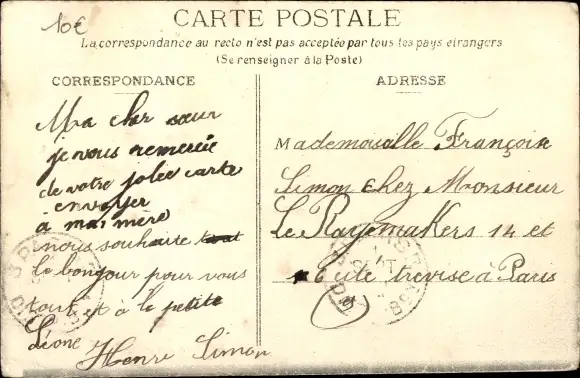 10€
CARTE POSTALE
La correspondance au recto n'est pas acceptée par tous les pays étrangers
(Se renseigner à la Poste)
CORRESPONDANCE
Ma cher sœur
je vous remercie
de votre jolee carte
envoyer
à ma mère
nous souhaite tout
le bonjour pour vous
tout et à la petite
Léone
Henri Simon
ADRESSE
Mademoiselle Françoise
Simon chez Monsieur
Le Raymakers 14 et
16 cite trevise à Paris